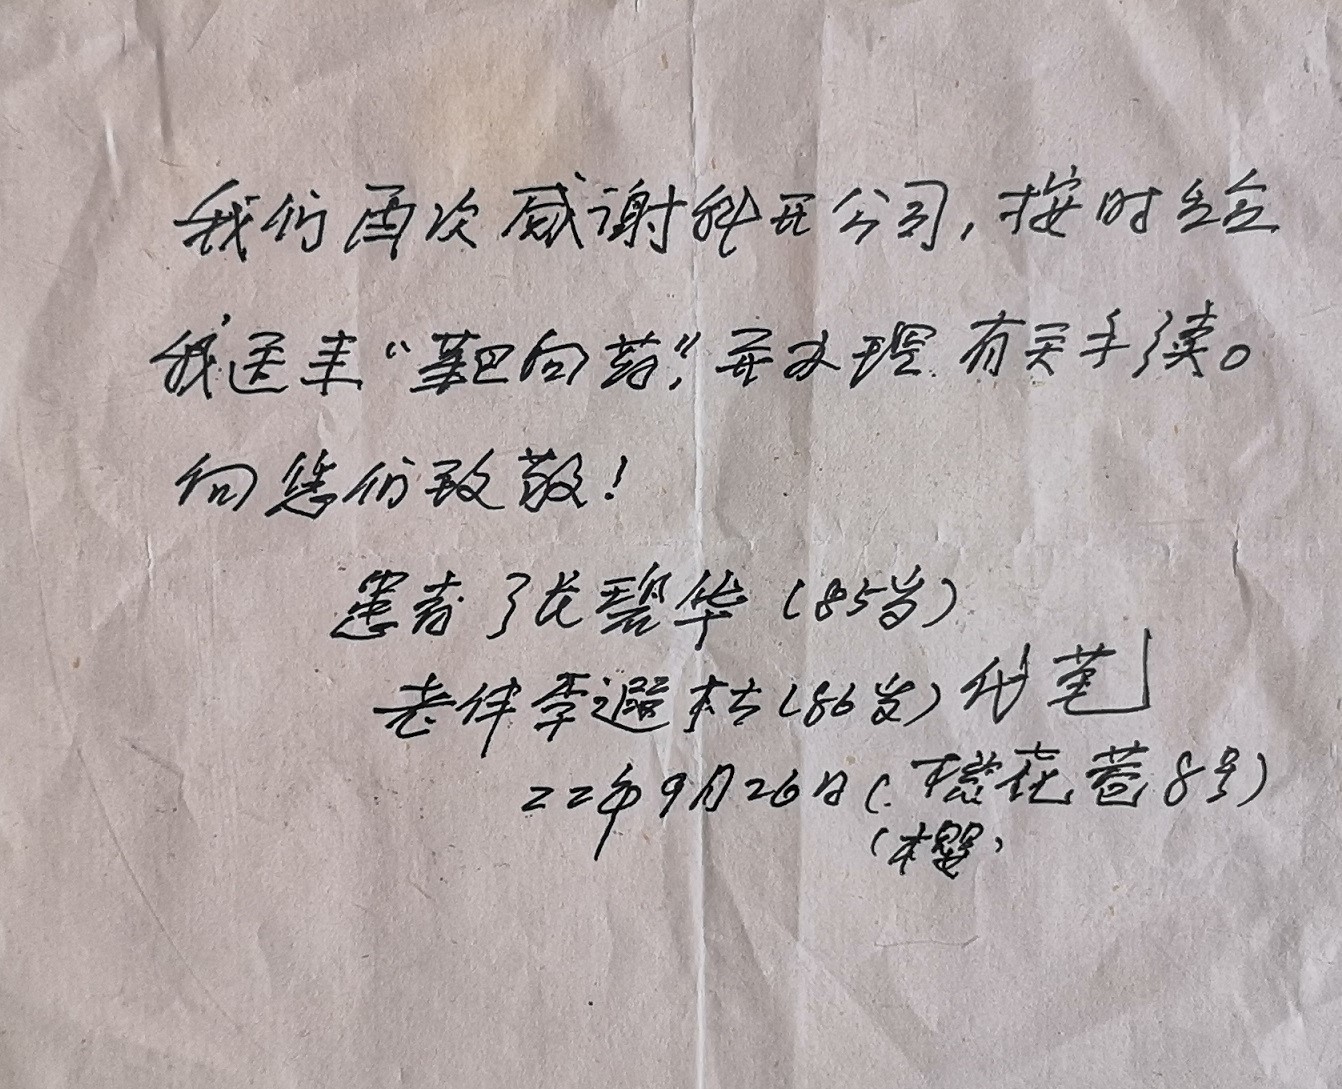 我们再次感谢科开公司,按时给
我送来“靶向药”,并办理有关手续。
向您们致敬!
患者张碧华(85岁)
老伴李遐桔(86岁)代笔
22年9月26日(樱花巷8号)
(樱)